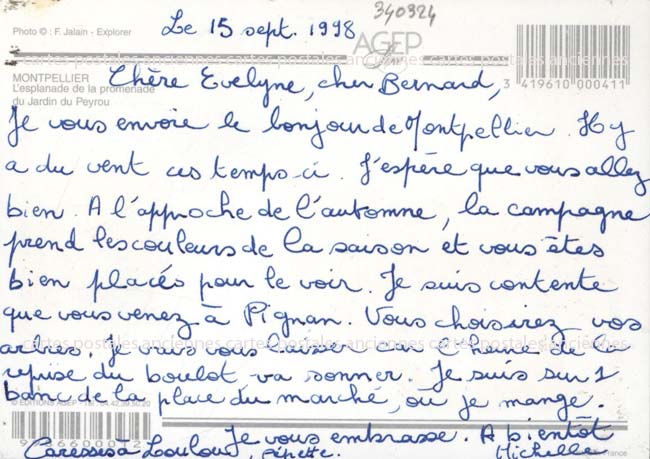 340324
Le 15 sept. 1998
Photo © : F. Jalain - Explorer
AGEP
MONTPELLIER
L'esplanade de la promenade
du Jardin du Peyrou
3 419610 000411
Chère Evelyne, cher Bernard,
Je vous envoie le bonjour de Montpellier. Il y
a du vent ces temps-ci. J'espère que vous allez
bien. A l'approche de l'automne, la campagne
prend les couleurs de la saison et vous êtes
bien placés pour le voir. Je suis contente
que vous venez à Pignan. Vous choisirez vos
arbres. Je vais vous laisser car l'heure de la
reprise du boulot va sonner. Je suis sur 1
banc de la place du marché, où je mange.
© EDITIONS AGEP - Tél. 04.42.39.50.20
Je vous embrasse. A bientôt
Caresses à Loulou, Pépette. Michelle
France
cartes postales anciennes cartes postales anciennes cartes postales anciennes